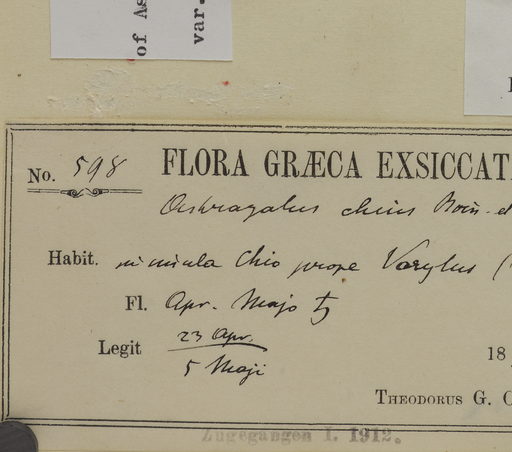 of As
var.
No. 598 FLORA GRÆCA EXSICCAT
Astragalus chius Boiss. et
Habit. in insula Chio prope Varylus (
Fl. Apr. Majo ♄
Legit 23 Apr.
5 Maji
18
THEODORUS G. O
Zugegangen I. 1912.